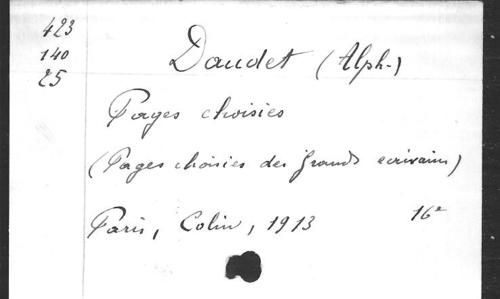 423
140
25
Daudet (Alph.)
Pages choisies
(Pages choisies des grands écrivains)
Paris, Colin, 1913 16°